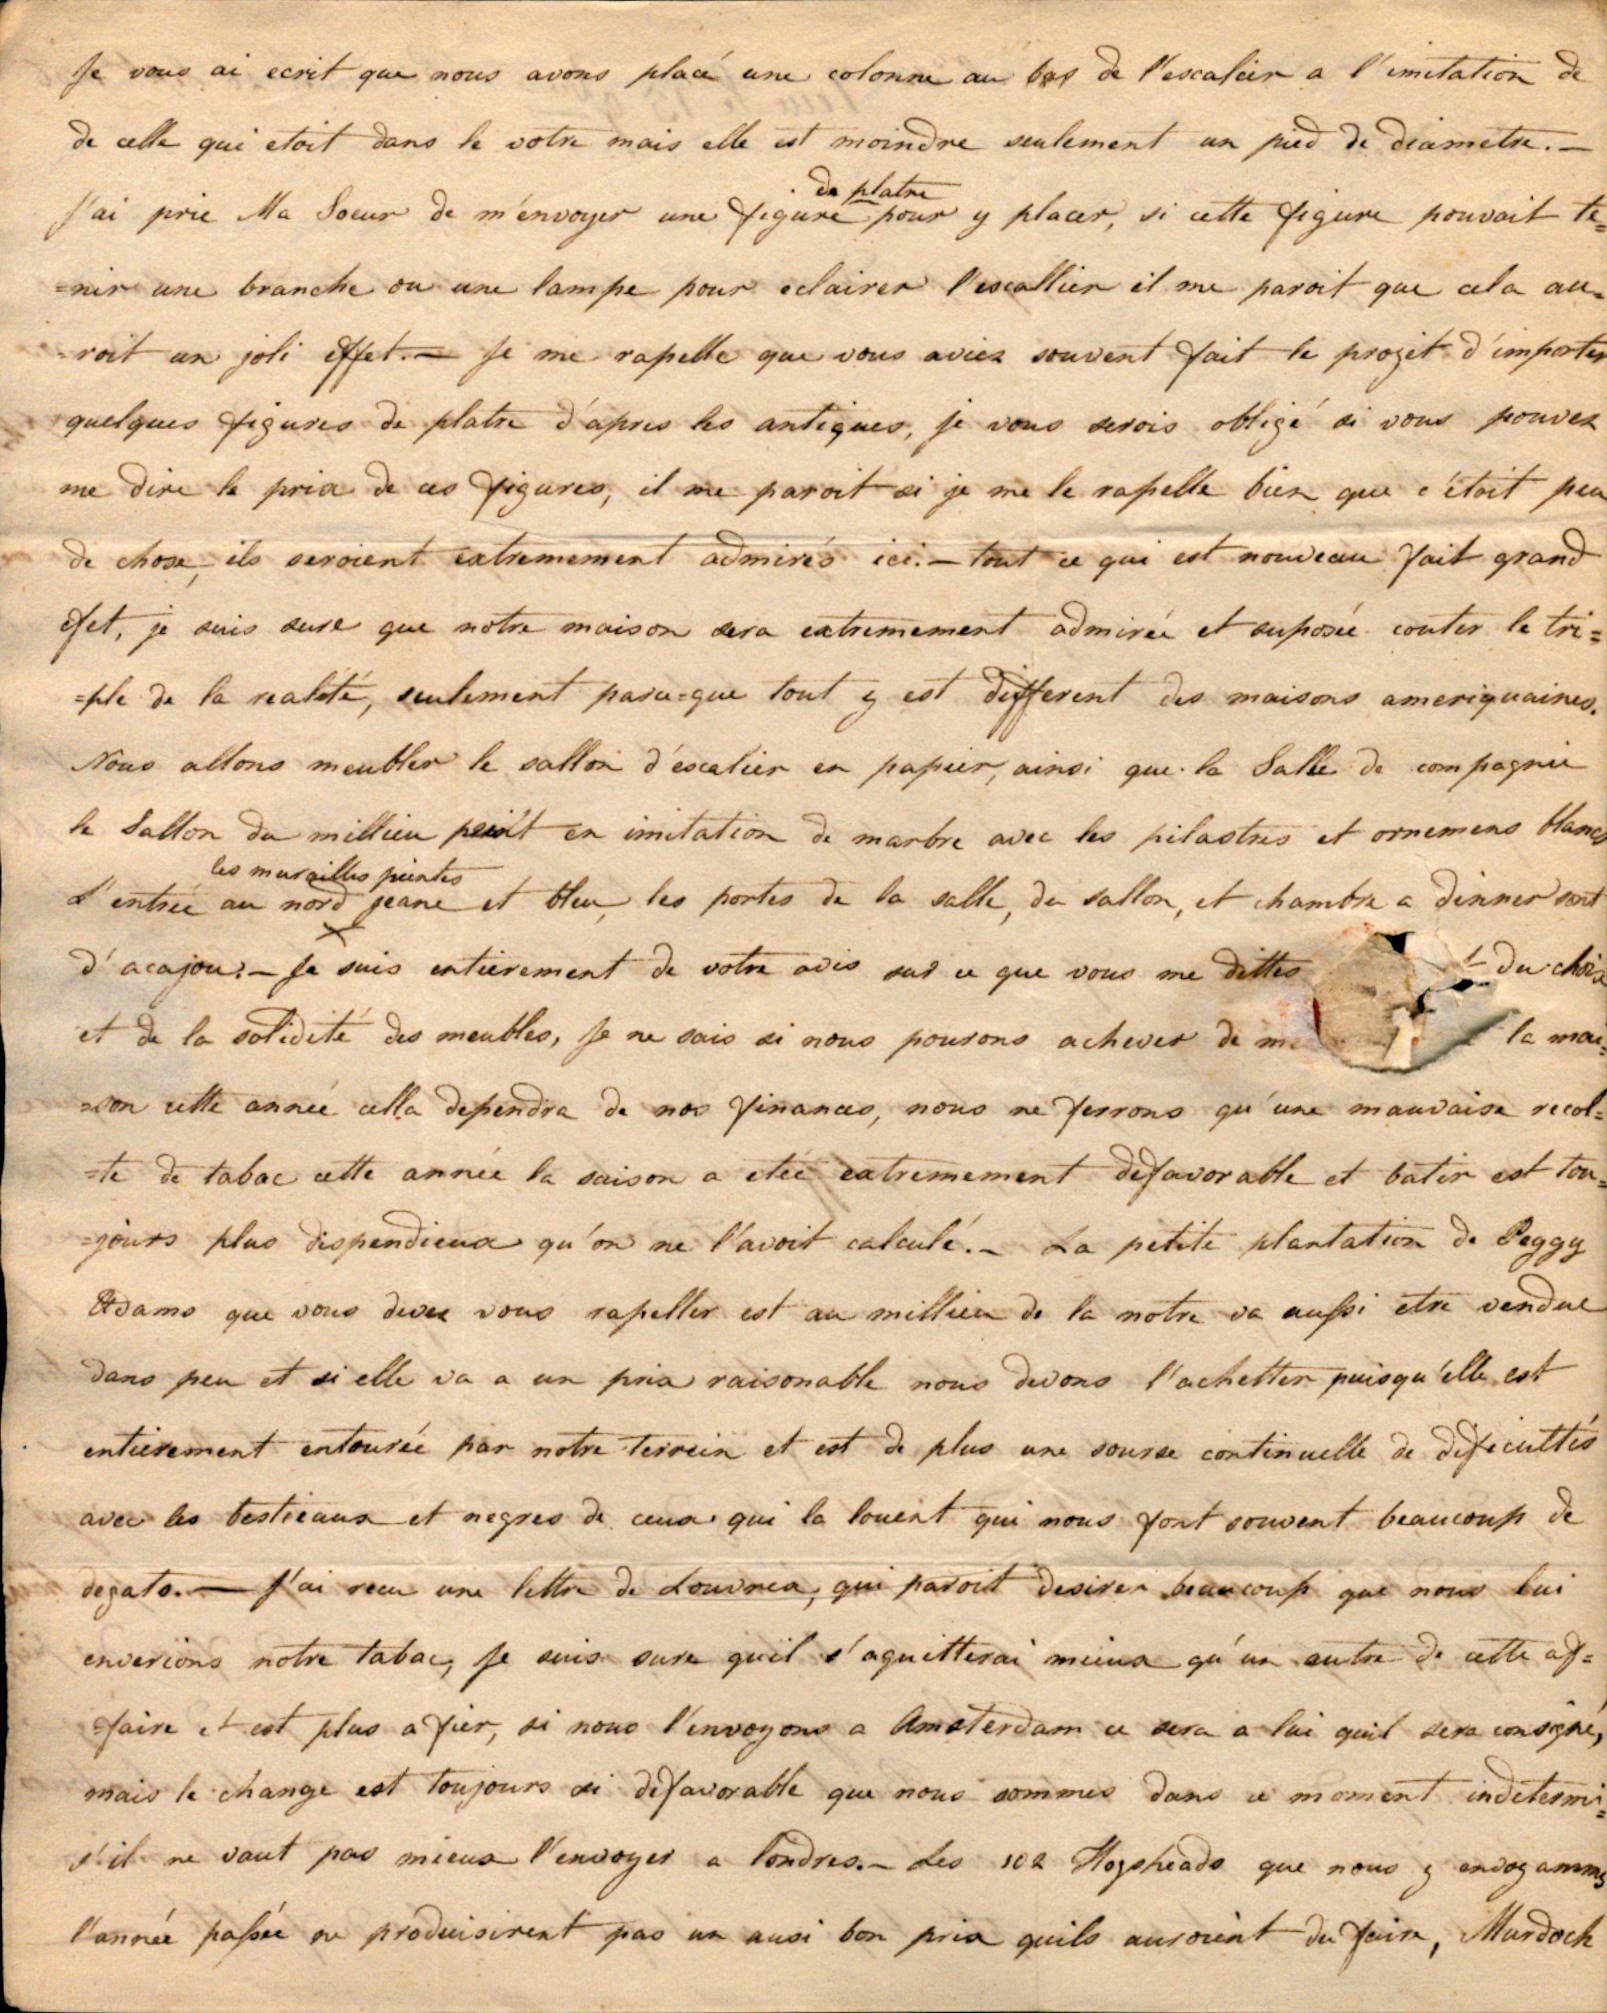 Je vous ai ecrit que nous avons placé une colonne au bas de l'escalier a l'imitation de
de celle qui etoit dans le votre mais elle est moindre seulement un pied de diametre.—
de platre
J'ai prie Ma Soeur de m'envoyer une figure pour y placer, si cette figure pouvait te=
=nir une branche ou une lampe pour eclairer l'escallier il me paroit que cela au=
=roit un joli effet.— Je me rapelle que vous aviez souvent fait le projet d'importer
quelques figures de platre d'apres les antiques, je vous serois obligé si vous pouvez
me dire le prix de ces figures, il me paroit si je me le rapelle bien que c'étoit peu
de chose, ils seroient extremement admirés ici.— tout ce qui est nouveau fait grand
efet, je suis sure que notre maison sera extremement admirée et suposée couter le tri=
=ple de la realité, seulement parce=que tout y est different des maisons ameriquaines.
Nous allons meubler le sallon d'escalier en papier, ainsi que la Salle de compagnie
le Sallon du millieu peint en imitation de marbre avec les pilastres et ornemens blancs
les murailles peintes
L'entrée au nord jeane et bleu, les portes de la salle, du sallon, et chambre a dinner sont
d'acajou.— Je suis entierement de votre avis sur ce que vous me dittes du choix
et de la solidité des meubles, Je ne sais si nous pourons achever de m la mai=
=son cette année cella dependra de nos finances, nous ne ferrons qu'une mauvaise recol=
=te de tabac cette année la saison a etée extremement defavorable et batir est tou=
=jours plus dispendieux qu'on ne l'avoit calculé.— La petite plantation de Peggy
Adams que vous devez vous rapeller est au millieu de la notre va aussi etre vendue
dans peu et si elle va a un prix raisonable nous devons l'achetter puisqu'elle est
entierement entourée par notre terrein et est de plus une sourse continuelle de dificultés
avec les bestieaux et negres de ceux qui la louent qui nous font souvent beaucoup de
degats.— J'ai recu une lettre de Louvrex, qui paroit desirer beaucoup que nous lui
enverions notre tabac, Je suis sure quil s'aquitterai mieux qu'un autre de cette af=
=faire et est plus a fier, si nous l'envoyons a Amsterdam ce sera a lui quil sera consigné,
mais le change est toujours si defavorable que nous sommes dans ce moment indetermi=
s'il ne vaut pas mieux l'envoyer a Londres.— Les 102 Hogsheads que nous y envoyammes
l'année passée ne produisirent pas un ausi bon prix quils auroient du faire, Murdoch